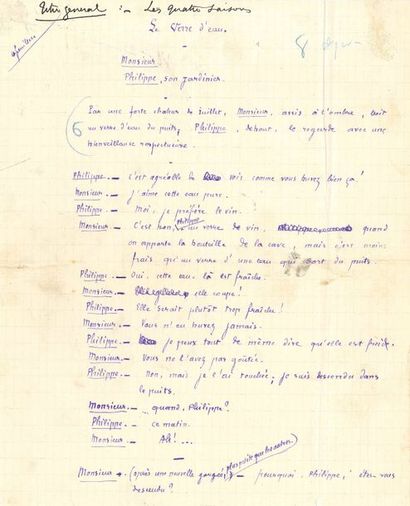 Titre général :- Les quatre saisons
Le Verre d'eau.
Monsieur
Philippe, son jardinier.
Par une forte chaleur de juillet, Monsieur, assis à l'ombre, boit
6 un verre d'eau du puits; Philippe, debout, le regarde avec une
bienveillance respectueuse.
Philippe.— C'est agréable de voir comme vous buvez bien ça!
Monsieur.— J'aime cette eau pure.
Philippe.— Moi, je préfère le vin.
Monsieur.— C'est bon, Philippe, un verre de vin, quand
on apporte la bouteille de la cave, mais c'est moins
frais qu'un verre d'une eau qui sort du puits.
Philippe.— Oui, cette eau là est fraîche.
Monsieur.— elle coupe!
Philippe.— Elle serait plutôt trop fraîche!
Monsieur.— Vous n'en buvez jamais.
Philippe.— Je peux tout de même dire qu'elle est froide.
Monsieur.— Vous ne l'avez pas goûtée.
Philippe.— Non, mais je l'ai touchée; je suis descendu dans
le puits.
Monsieur.— quand, Philippe?
Philippe.— ce matin.
Monsieur.— Ah!....
Monsieur.— (après une nouvelle gorgée, plus petite que les autres)— pourquoi, Philippe, êtes-vous
descendu?